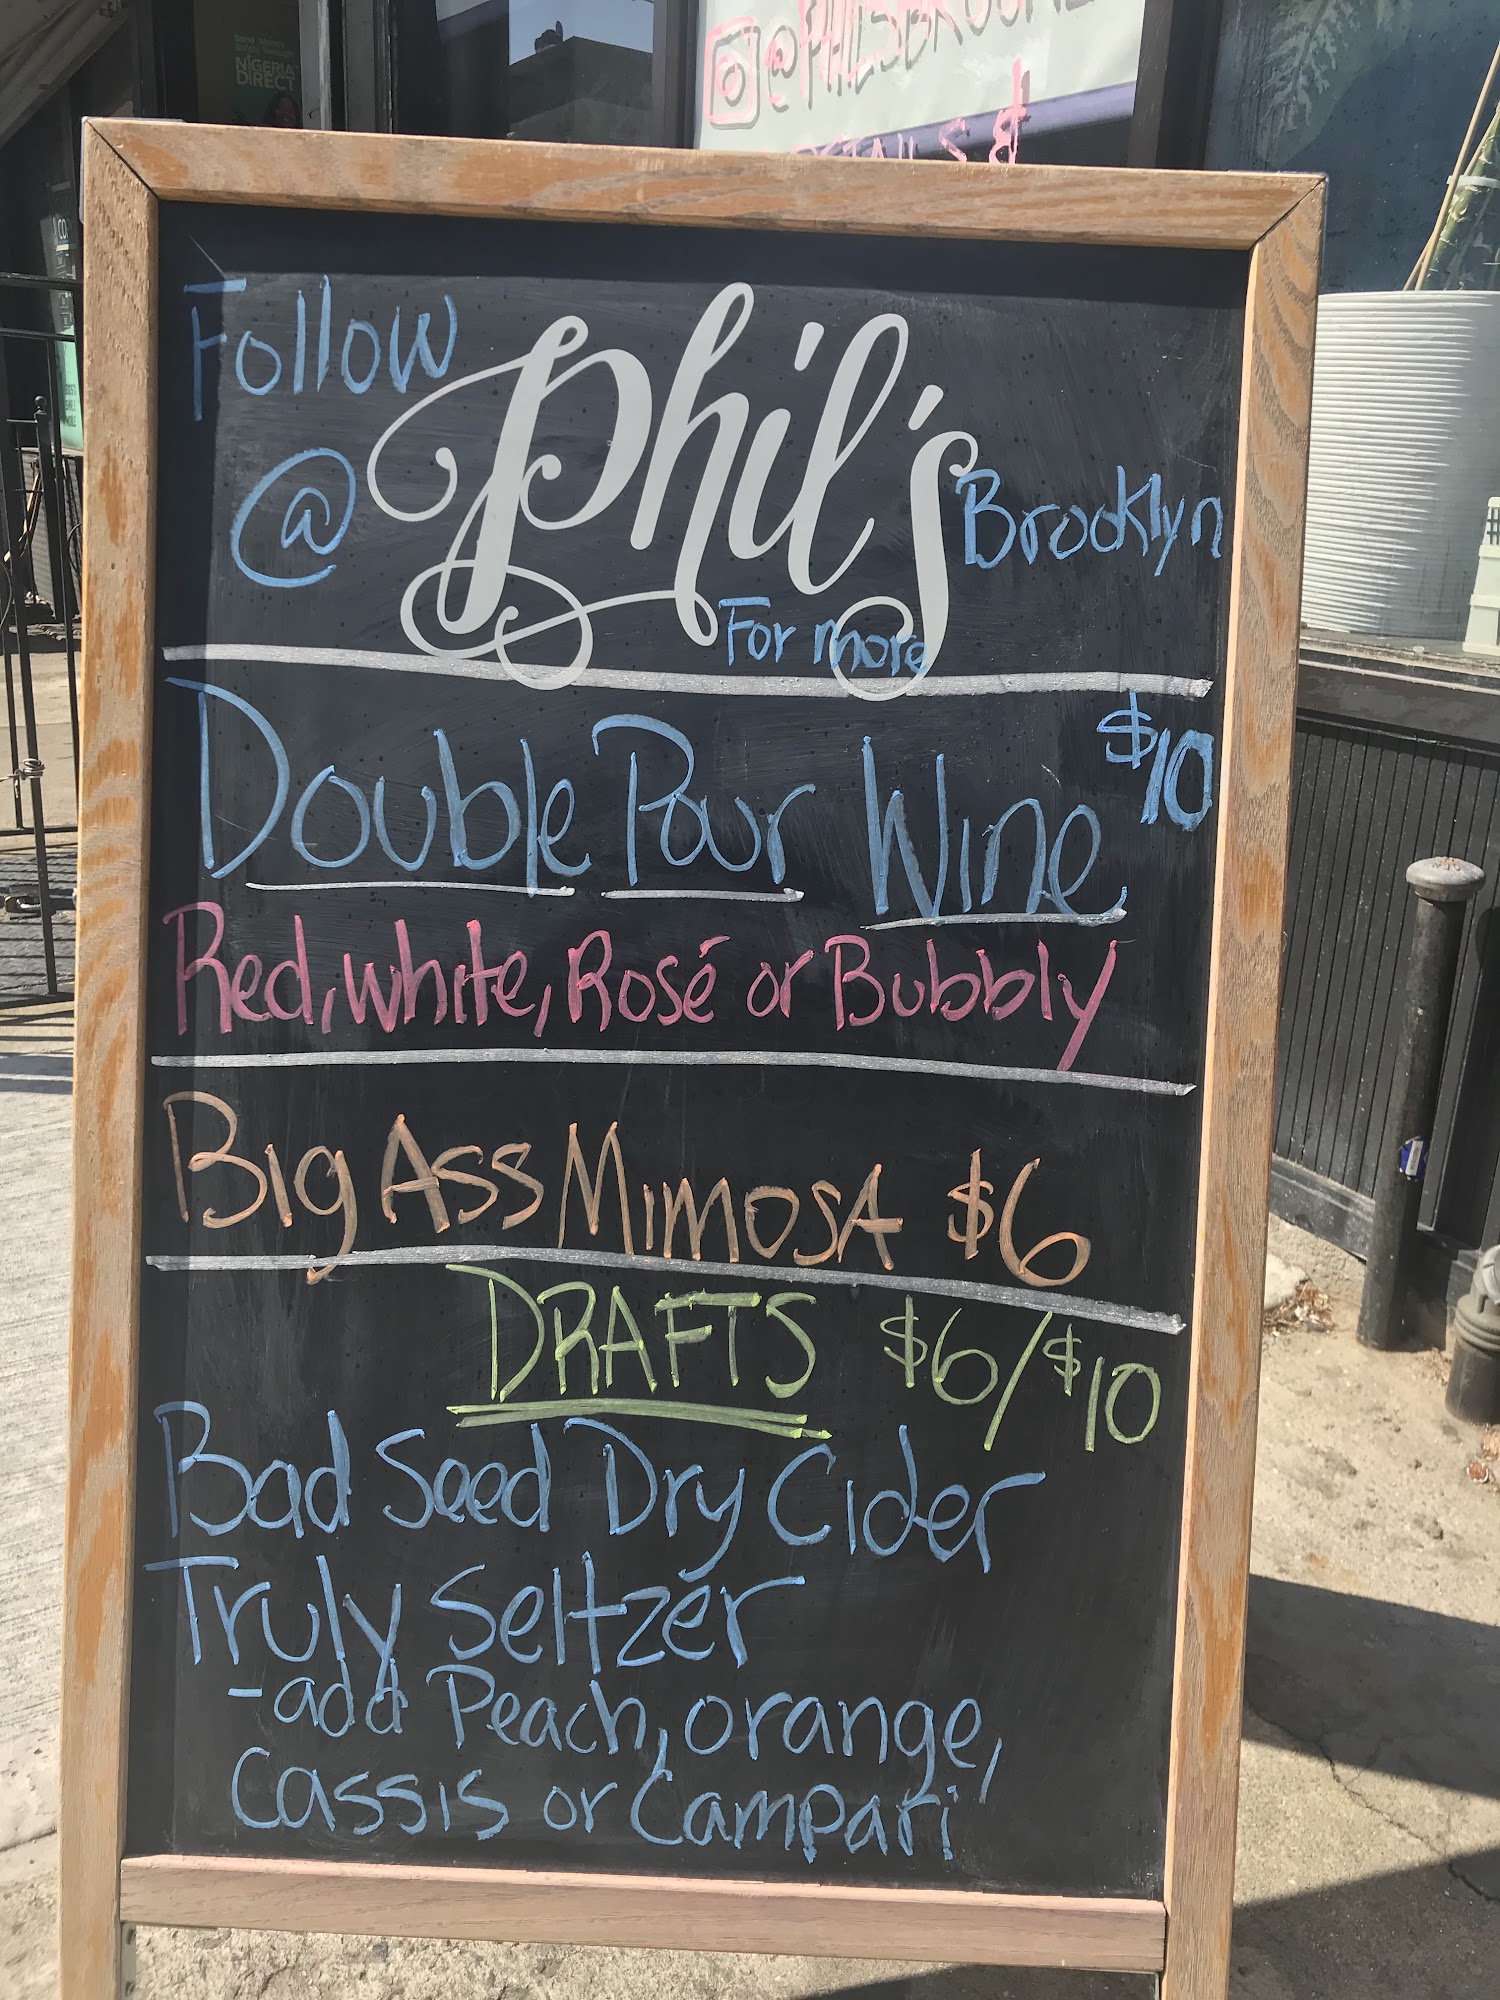 Send Money
Safely Through
NIGERIA
DIRECT
@PHILSBROOKL
Follow phil's
@ Brooklyn
For more
Double Pour Wine $10
Red, White, Rosé or Bubbly
Big Ass Mimosa $6
DRAFTS $6/$10
Bad Seed Dry Cider
Truly Seltzer
-add Peach, orange,
Cassis or Campari